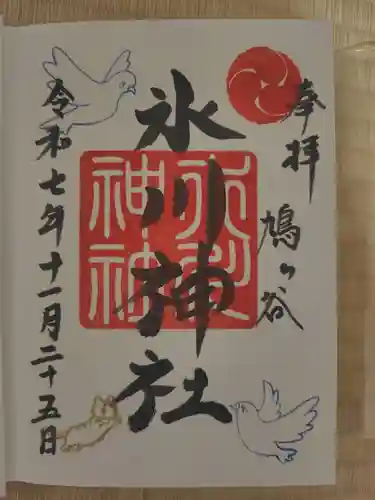 奉拝
鳩ヶ谷
氷川神社
氷川神社
令和七年十一月二十五日